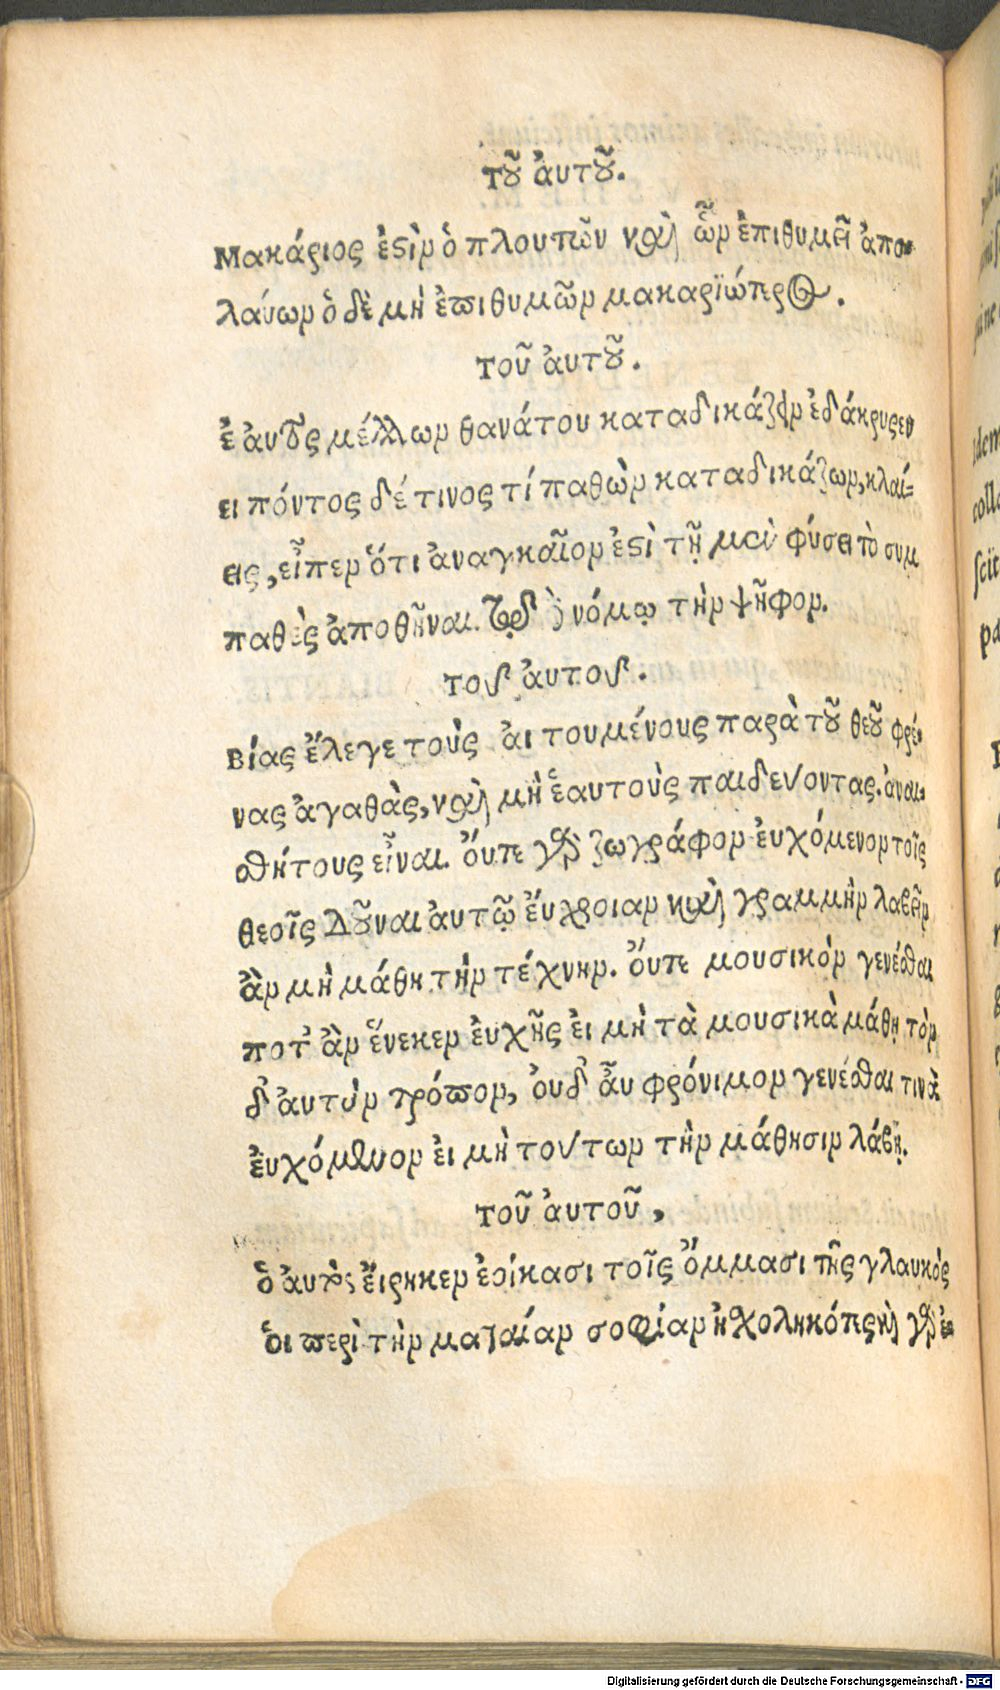 τοῦ ἀυτοῦ.
Μακάριος ἐστὶν ὁ πλουτῶν καὶ ὧν ἐπιθυμεῖ ἀπο-
λαύων ὁ δὲ μὴ ἐπιθυμῶν μακαριώτερος.
τοῦ ἀυτοῦ.
ἑ ἀυτὸς μέλλων θανάτου καταδικάζειν ἐδάκρυσεν
ειπόντος δέ τινος τί παθὼν καταδικάζων, κλαί-
εις, εἶπεν ὅτι ἀναγκαῖον ἐστὶ τῇ μὲν φύσει τὸ συμ
παθὲς ἀποθῆναι. τῷ δὲ νόμῳ τὴν ψῆφον.
τοῦ ἀυτοῦ.
Βίας ἔλεγε τοὺς ἀιτουμένους παρὰ τοῦ θεοῦ φρέ-
νας ἀγαθὰς, καὶ μὴ ἑαυτοὺς παιδεύοντας. ἀναι-
σθήτους εἶναι. Ὄυτε γὰρ ζωγράφον ἐυχόμενον τοῖς
θεοῖς Δοῦναι ἀυτῷ ἔυχροιαν καὶ γραμμὴν λαβεῖν
ἂν μὴ μάθη τὴν τέχνην. Ὄυτε μουσικὸν γενέσθαι
ποτ᾽ ἂν ἕνεκεν ἐυχῆς ἐι μὴ τὰ μουσικὰ μάθῃ τὸν
δ᾽ ἀυτὸν τρόπον, ὀυδ᾽ ἂν φρόνιμον γενέσθαι τινὰ
ἐυχόμενον ἐι μὴ τούτων τὴν μάθησιν λάβῃ.
τοῦ ἀυτοῦ,
ὁ ἀυτὸς ἔιρηκεν ἐοίκασι τοῖς Ὄμμασι τῆς γλαυκὸς
ὁι περὶ τὴν ματαίαν σοφίαν ἠσχοληκότες καὶ γὰρ ἐκ
Digitalisierung gefördert durch die Deutsche Forschungsgemeinschaft - DFG